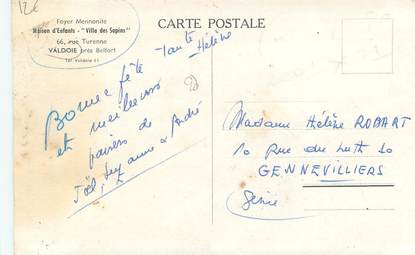 12€
Foyer Mennonite
Maison d'Enfants - "Villa des Sapins"
66, rue Turenne
VALDOIE près Belfort
Tél. Valdoie 61
CARTE POSTALE
Tante
Hélène
Bonne fête
et meilleurs
baisers de
Joël, Suzanne & André
Madame Hélène ROBART
10 Rue du
GENNEVILLIERS
Seine